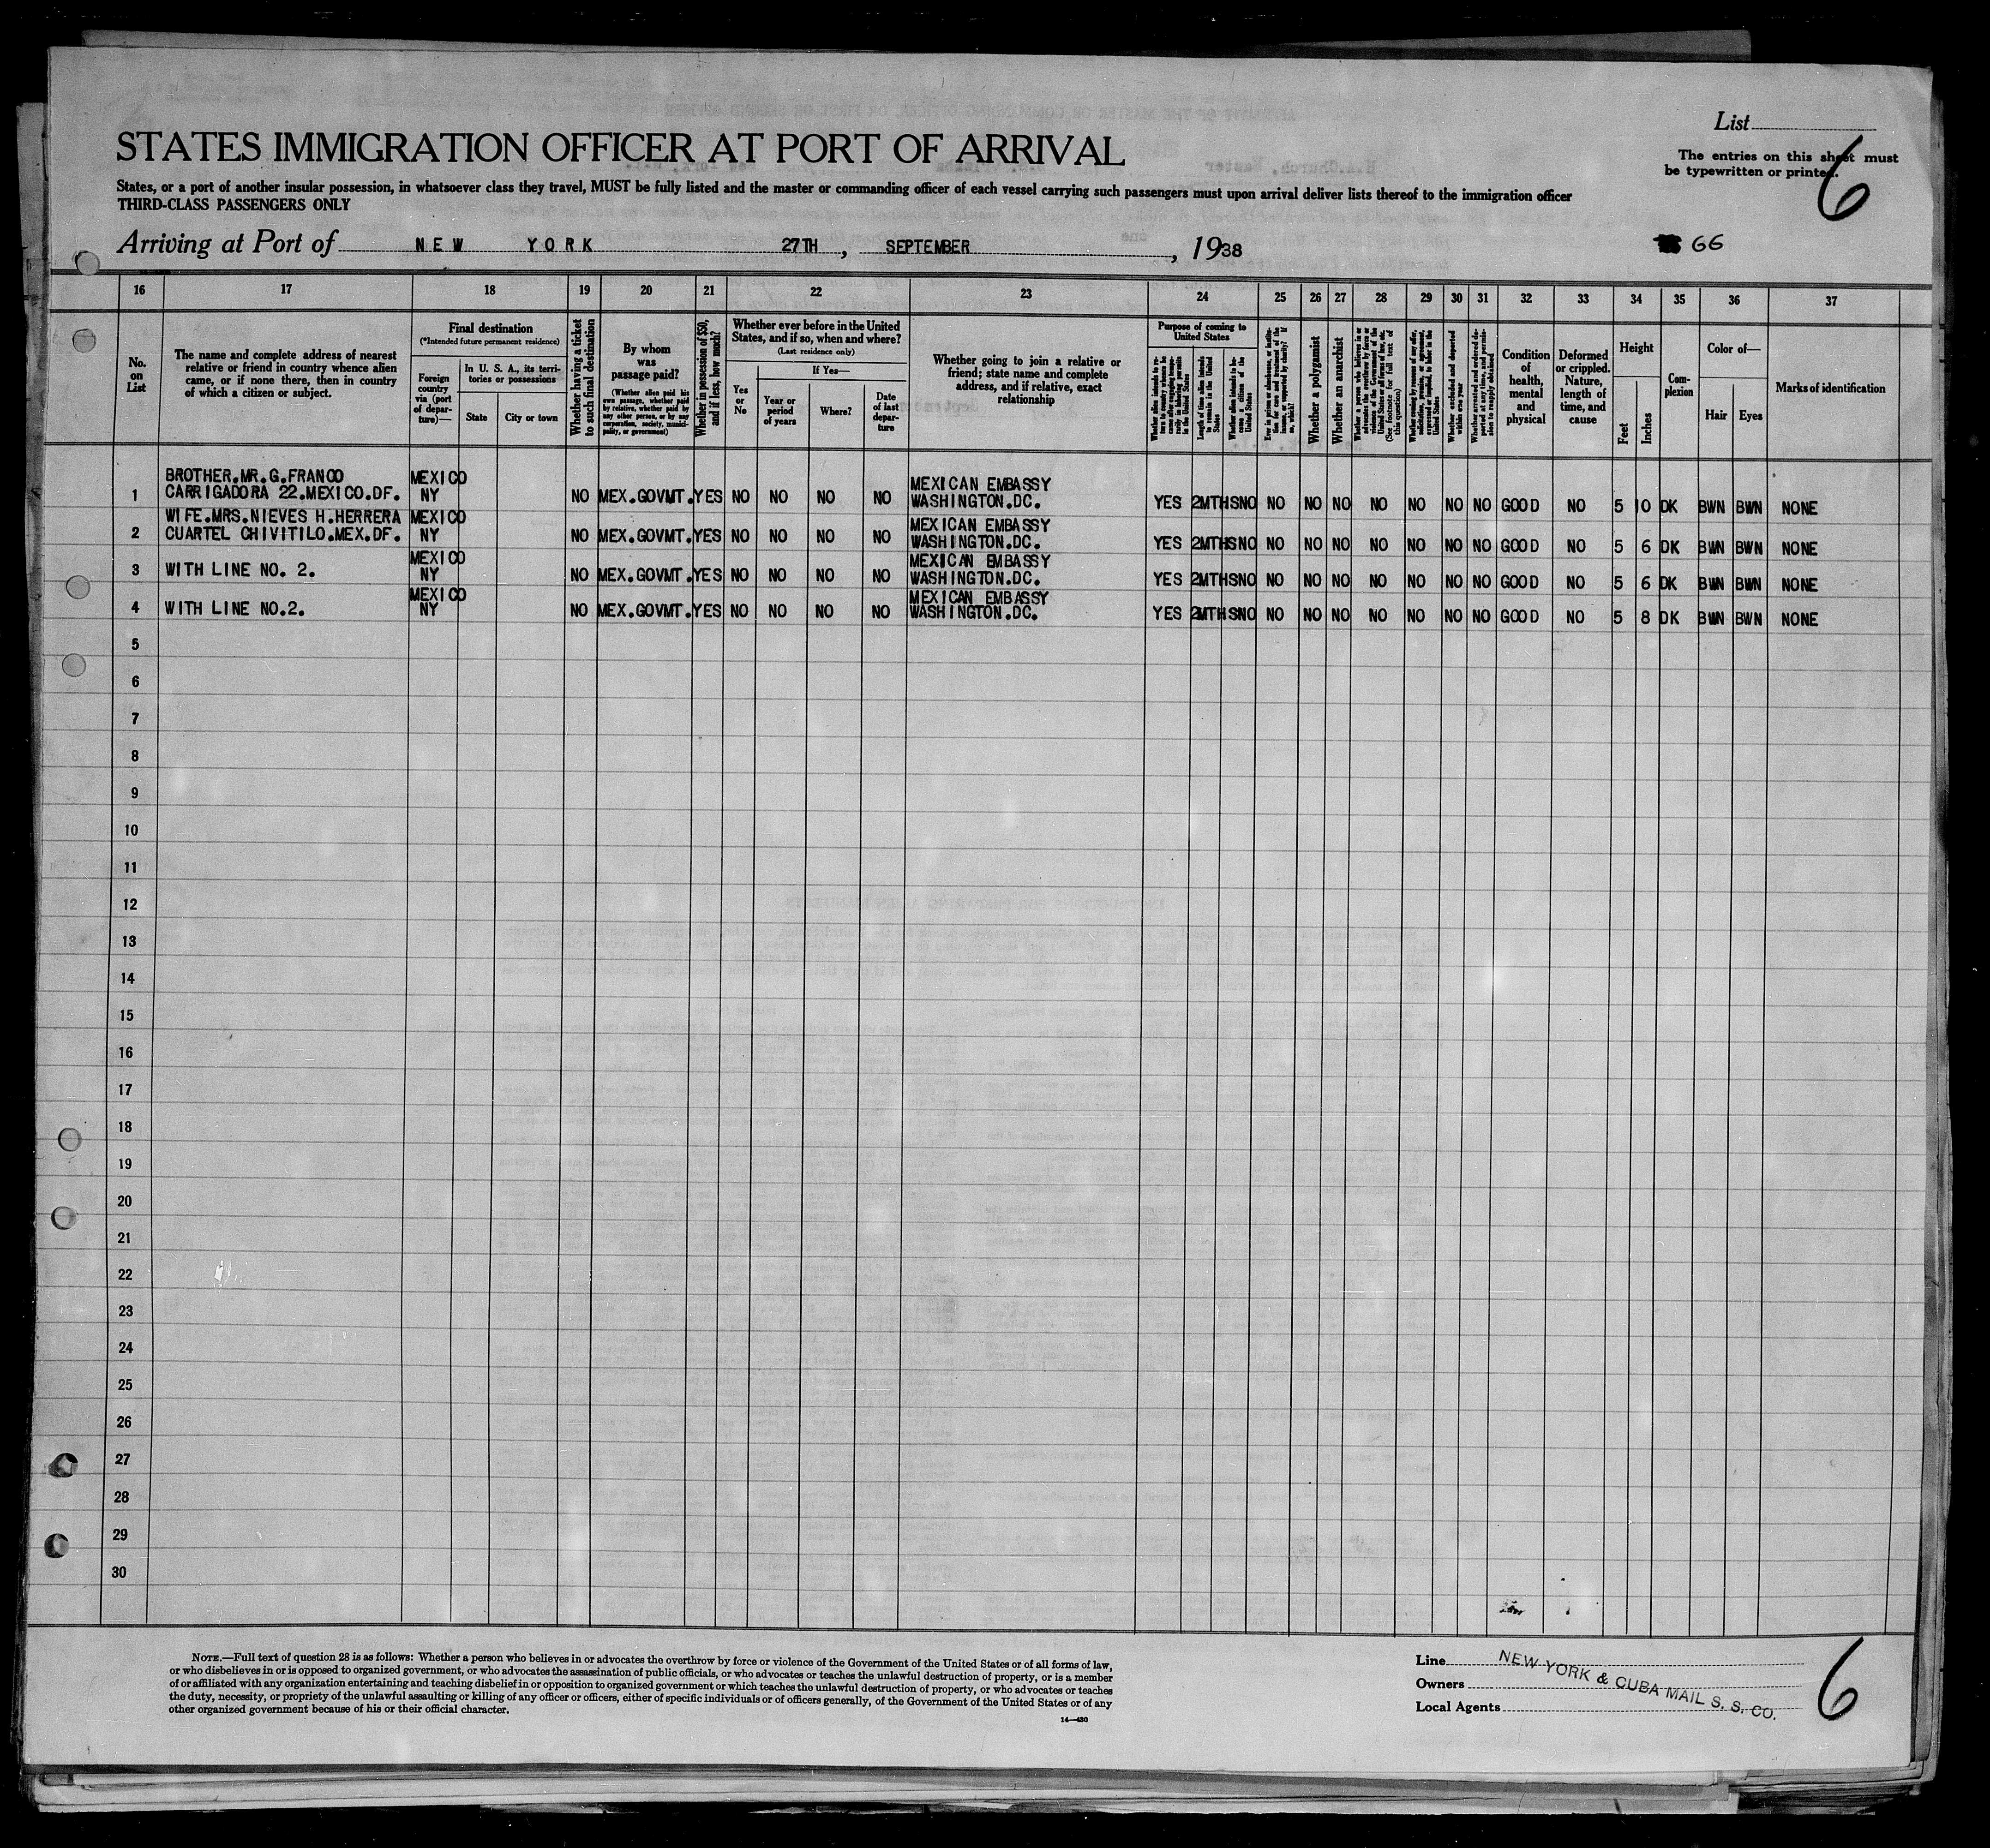 List
The entries on this sheet must
be typewritten or printed.
6
STATES IMMIGRATION OFFICER AT PORT OF ARRIVAL
States, or a port of another insular possession, in whatsoever class they travel, MUST be fully listed and the master or commanding officer of each vessel carrying such passengers must upon arrival deliver lists thereof to the immigration officer
THIRD-CLASS PASSENGERS ONLY
Arriving at Port of NEW YORK 27TH, SEPTEMBER, 1938
66
16 17 18 19 20 21 22 23 24 25 26 27 28 29 30 31 32 33 34 35 36 37
No. on List
The name and complete address of nearest relative or friend in country whence alien came, or if none there, then in country of which a citizen or subject.
Final destination
(*Intended future permanent residence)
Foreign country via (port of departure)—
In U. S. A., its territories or possessions
State
City or town
Whether having a ticket to such final destination
By whom was passage paid?
(Whether alien paid his own passage, whether paid by relative, whether paid by any other person, or by any corporation, society, municipality, or government)
Whether in possession of $50, and if less, how much?
Whether ever before in the United States, and if so, when and where?
(Last residence only)
Yes or No
If Yes—
Year or period of years
Where?
Date of last departure
Whether going to join a relative or friend; state name and complete address, and if relative, exact relationship
Purpose of coming to United States
Length of time alien intends to remain in the United States
Whether alien intends to become a citizen of the United States
Whether a polygamist
Whether an anarchist
(See footnote for full text of this question)
Condition of health, mental and physical
Deformed or crippled. Nature, length of time, and cause
Height
Feet
Inches
Complexion
Color of—
Hair
Eyes
Marks of identification
BROTHER.MR.G.FRANCO MEXICO MEXICAN EMBASSY
1 CARRIGADORA 22.MEXICO.DF. NY NO MEX.GOVMT. YES NO NO NO NO WASHINGTON.DC. YES 2MTHS NO NO NO NO NO NO NO NO GOOD NO 5 10 DK BWN BWN NONE
WIFE.MRS.NIEVES H.HERRERA MEXICO MEXICAN EMBASSY
2 CUARTEL CHIVITILO.MEX.DF. NY NO MEX.GOVMT. YES NO NO NO NO WASHINGTON.DC. YES 2MTHS NO NO NO NO NO NO NO NO GOOD NO 5 6 DK BWN BWN NONE
MEXICO MEXICAN EMBASSY
3 WITH LINE NO. 2. NY NO MEX.GOVMT. YES NO NO NO NO WASHINGTON.DC. YES 2MTHS NO NO NO NO NO NO NO NO GOOD NO 5 6 DK BWN BWN NONE
MEXICO MEXICAN EMBASSY
4 WITH LINE NO.2. NY NO MEX.GOVMT. YES NO NO NO NO WASHINGTON.DC. YES 2MTHS NO NO NO NO NO NO NO NO GOOD NO 5 8 DK BWN BWN NONE
5
6
7
8
9
10
11
12
13
14
15
16
17
18
19
20
21
22
23
24
25
26
27
28
29
30
NOTE.—Full text of question 28 is as follows: Whether a person who believes in or advocates the overthrow by force or violence of the Government of the United States or of all forms of law,
or who disbelieves in or is opposed to organized government, or who advocates the assassination of public officials, or who advocates or teaches the unlawful destruction of property, or is a member
of or affiliated with any organization entertaining and teaching disbelief in or opposition to organized government or which teaches the unlawful destruction of property, or who advocates or teaches
the duty, necessity, or propriety of the unlawful assaulting or killing of any officer or officers, either of specific individuals or of officers generally, of the Government of the United States or of any
other organized government because of his or their official character.
14—430
Line
Owners
Local Agents
NEW YORK & CUBA MAIL S. S. CO.
6